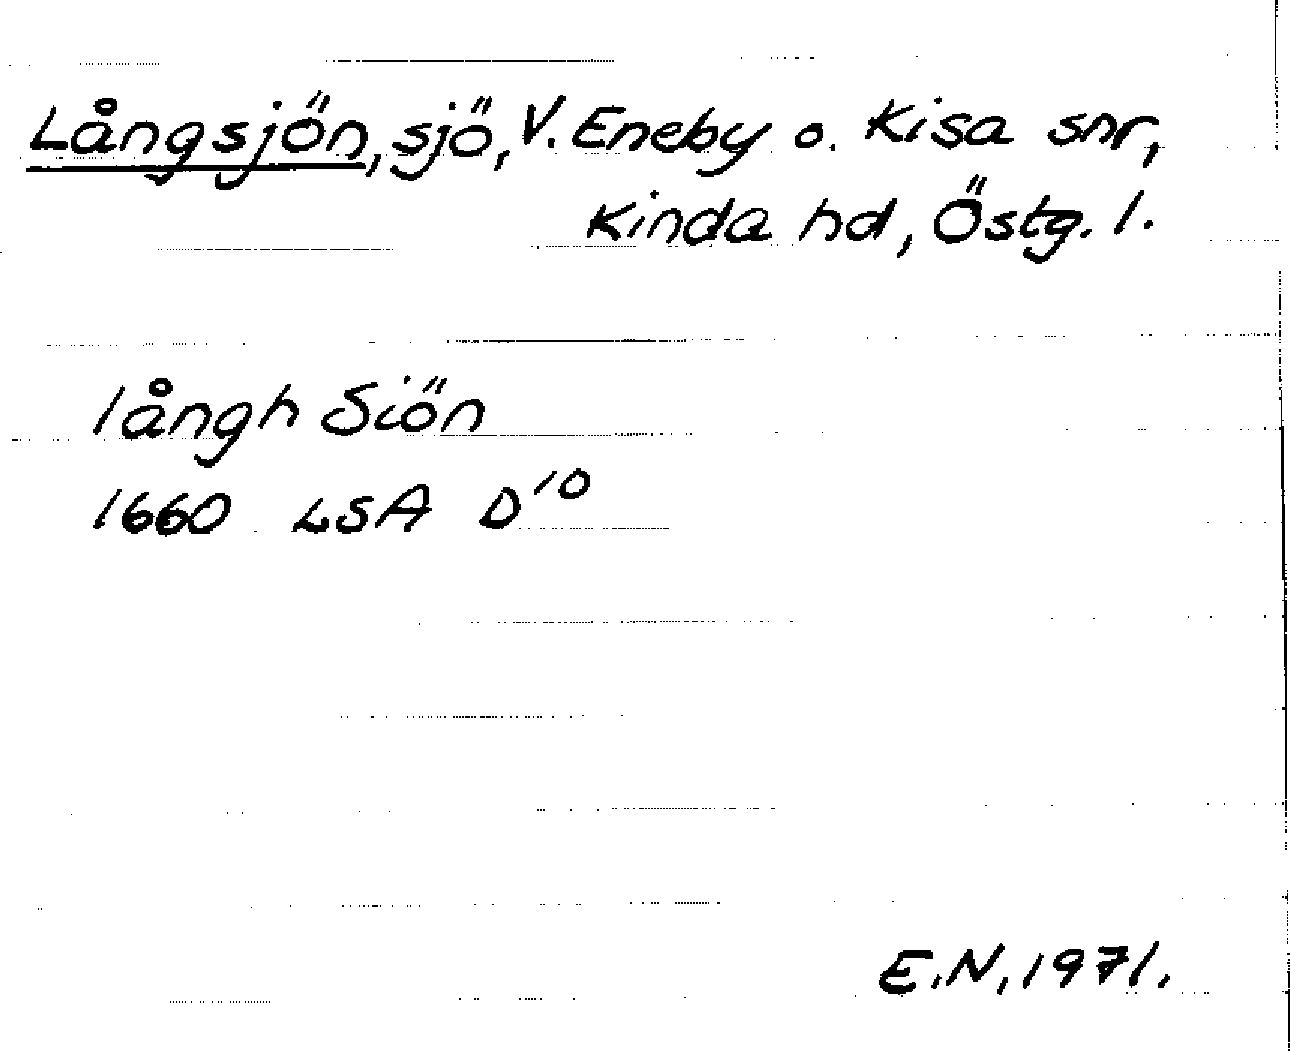 Långsjön, sjö, V. Eneby o. Kisa snr,
Kinda hd, Östg. l.
långh Siön
1660 LSA D¹⁰
E.N. 1971.